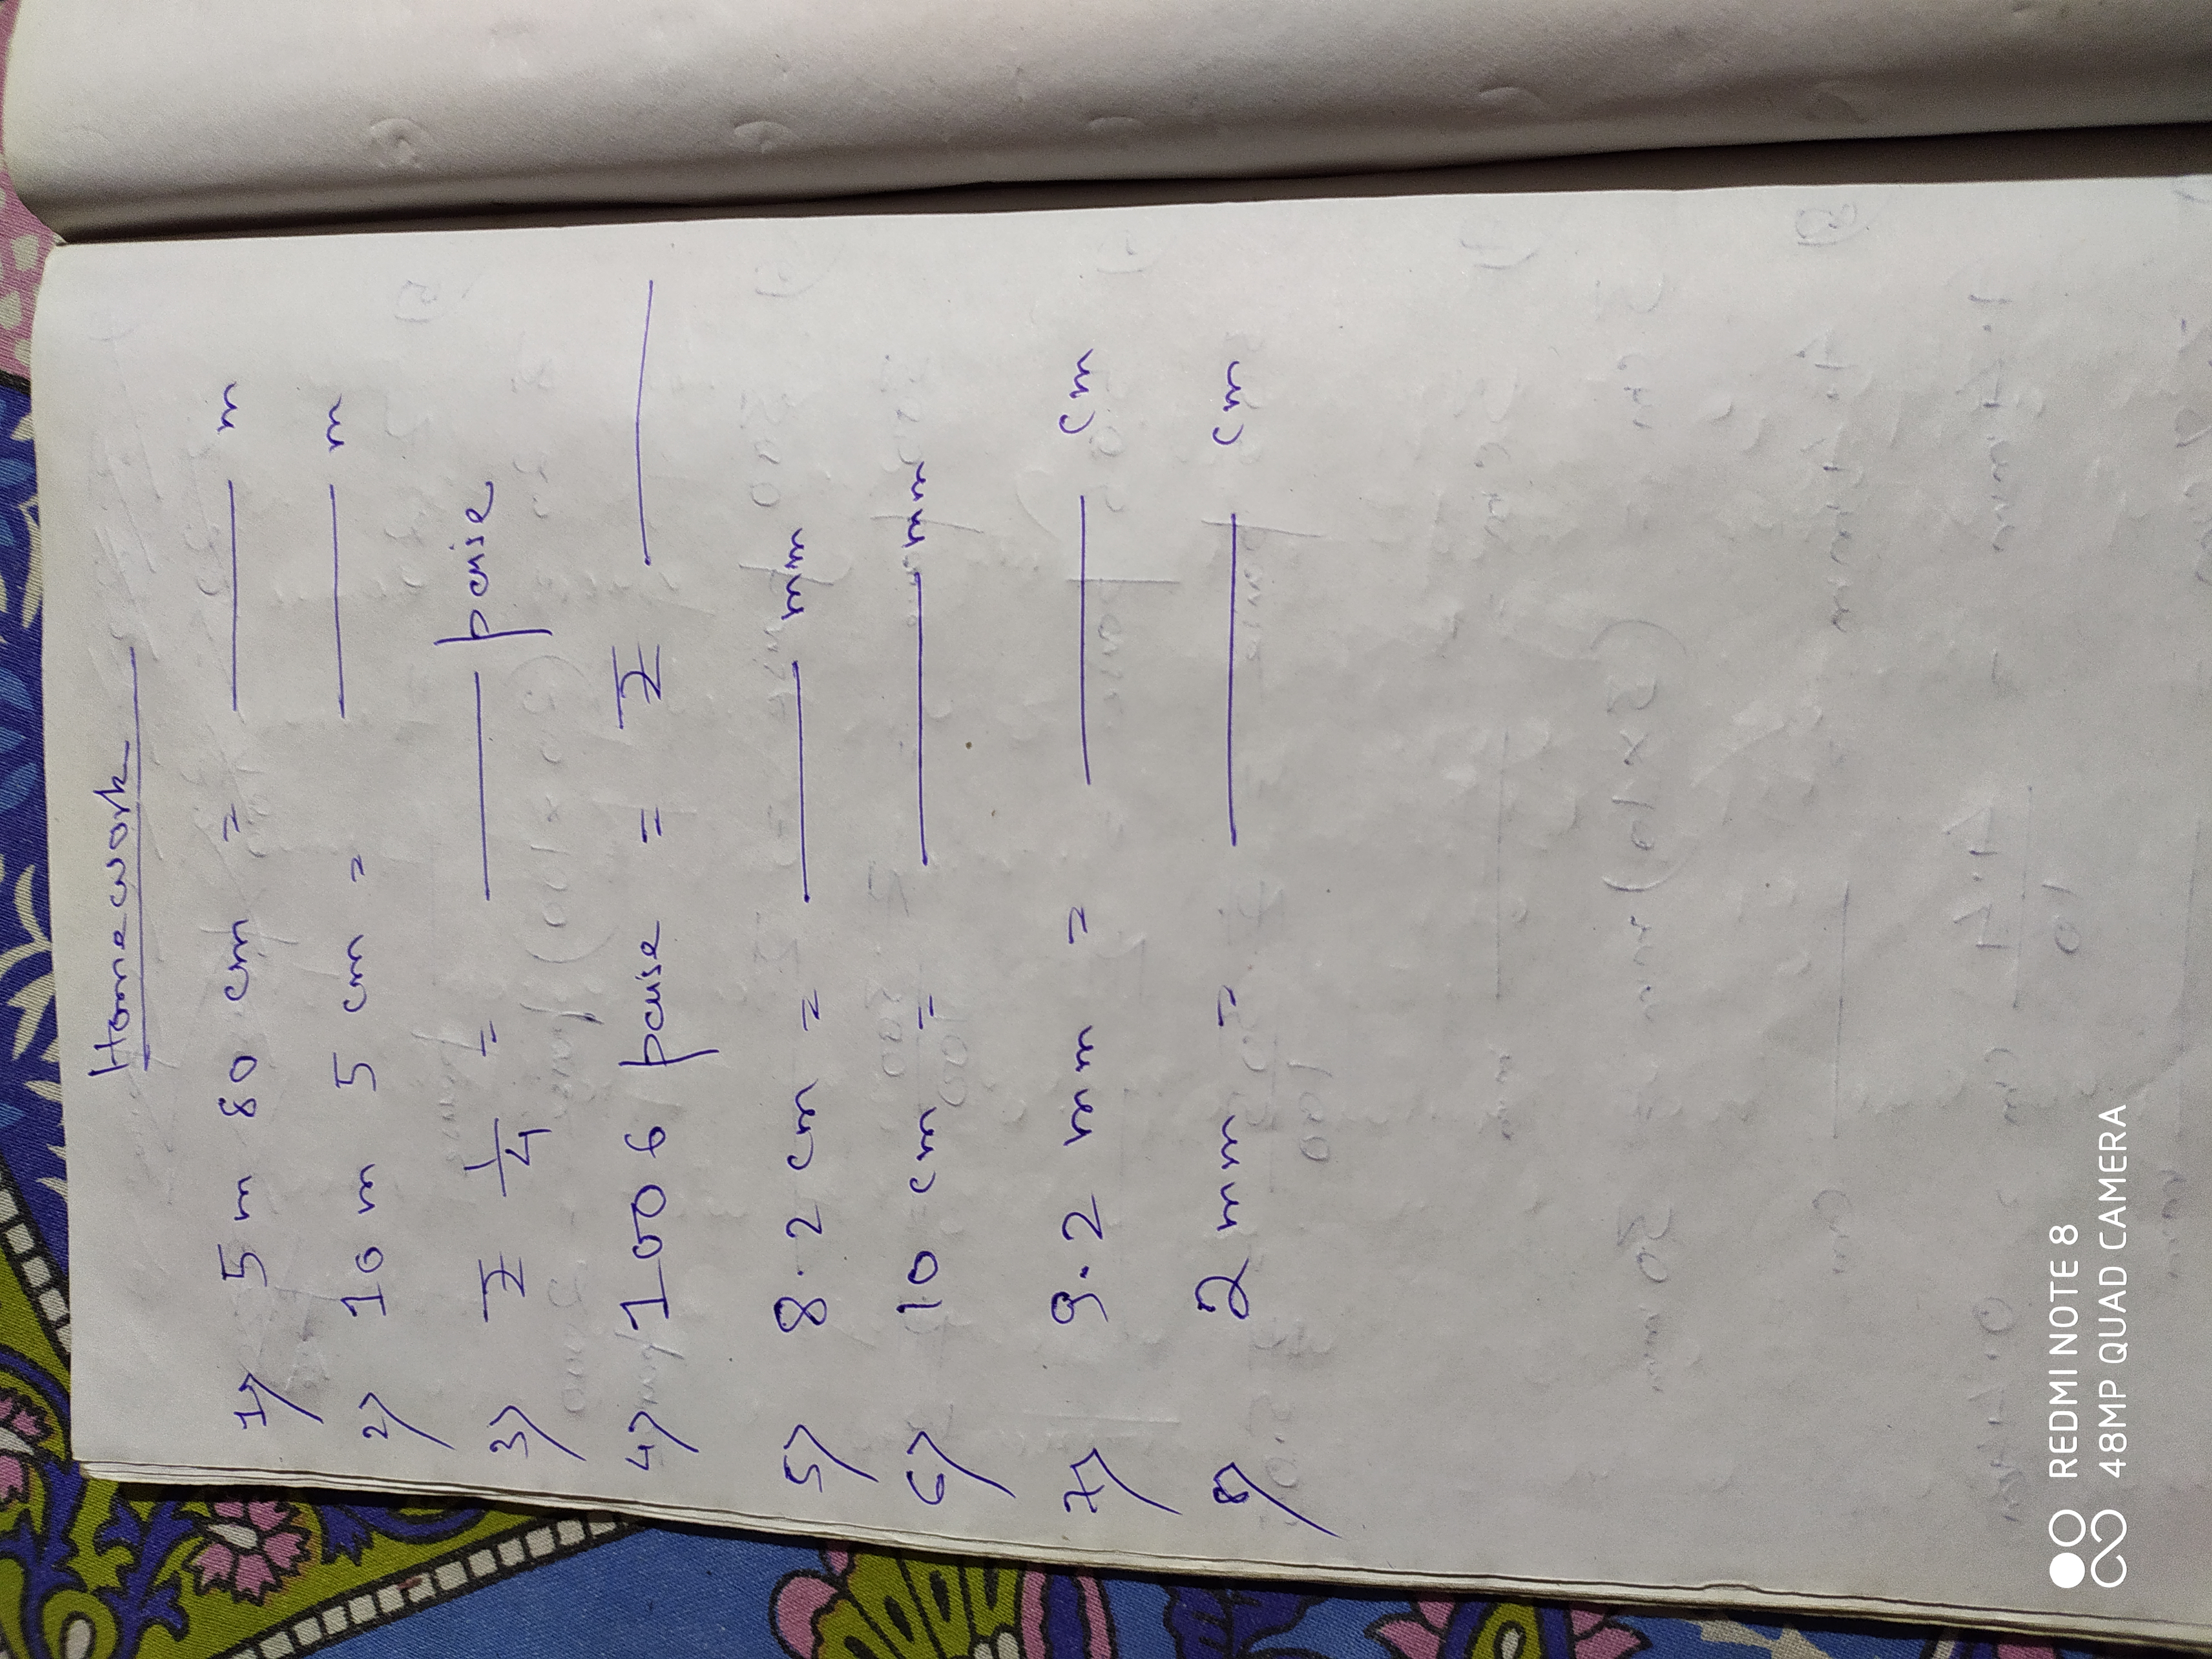 Homework
1) 5 m 80 cm = ____ m
2) 10 m 5 cm = ____ m
3) ₹ 1/4 = ____ paise
4) 1006 paise = ₹ ____
5) 8.2 cm = ____ mm
6) 10 cm = ____ mm
7) 9.2 mm = ____ cm
8) 2 mm = ____ cm
REDMI NOTE 8
48MP QUAD CAMERA